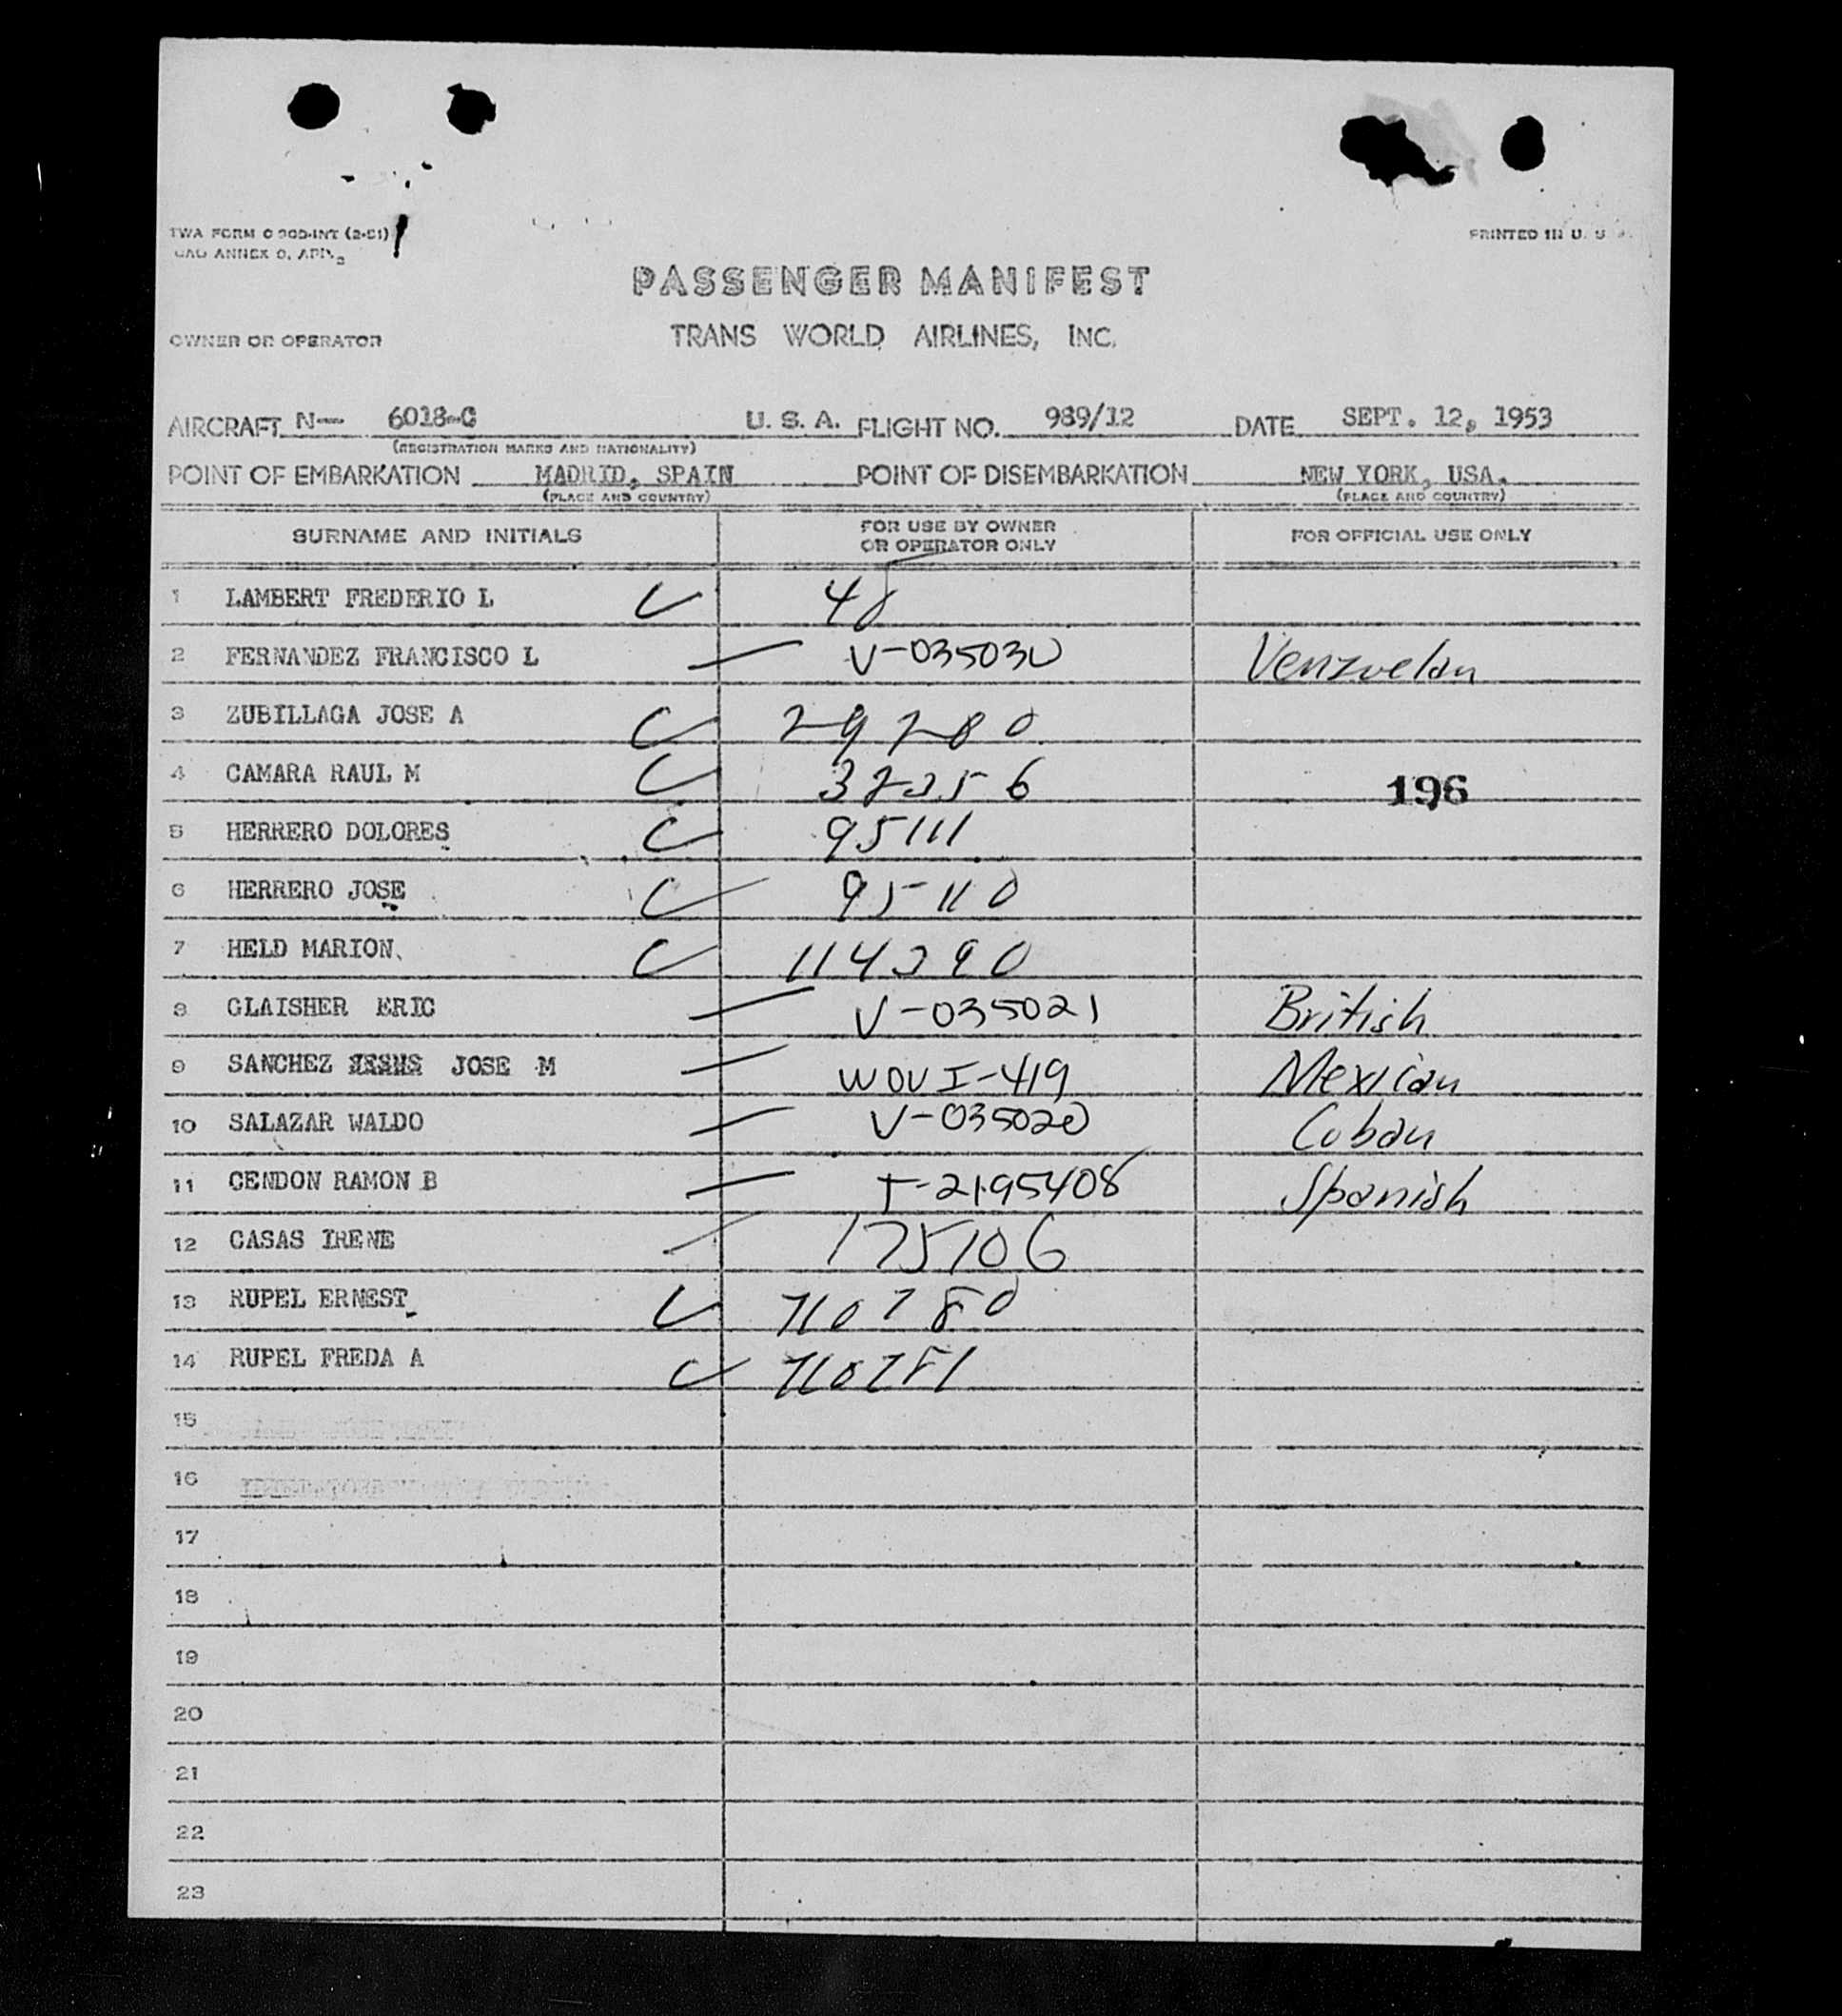 TWA FORM
PRINTED IN U. S
PASSENGER MANIFEST
OWNER OR OPERATOR TRANS WORLD AIRLINES, INC.
AIRCRAFT N— 6018-C U. S. A. FLIGHT NO. 989/12 DATE SEPT. 12, 1953
(REGISTRATION MARKS AND NATIONALITY)
POINT OF EMBARKATION MADRID, SPAIN POINT OF DISEMBARKATION NEW YORK, USA.
(PLACE AND COUNTRY) (PLACE AND COUNTRY)
SURNAME AND INITIALS FOR USE BY OWNER OR OPERATOR ONLY FOR OFFICIAL USE ONLY
1 LAMBERT FREDERIO L 48
2 FERNANDEZ FRANCISCO L V-035030 Venzuelan
3 ZUBILLAGA JOSE A 29280
4 CAMARA RAUL M 196
5 HERRERO DOLORES 95111
6 HERRERO JOSE 95110
7 HELD MARION 114390
8 GLAISHER ERIC V-035021 British
9 SANCHEZ JOSE M WOVI-419 Mexican
10 SALAZAR WALDO V-035020 Cuban
11 CENDON RAMON B T-2195408 Spanish
12 CASAS IRENE 175106
13 RUPEL ERNEST 710780
14 RUPEL FREDA A 710781
15
16
17
18
19
20
21
22
23